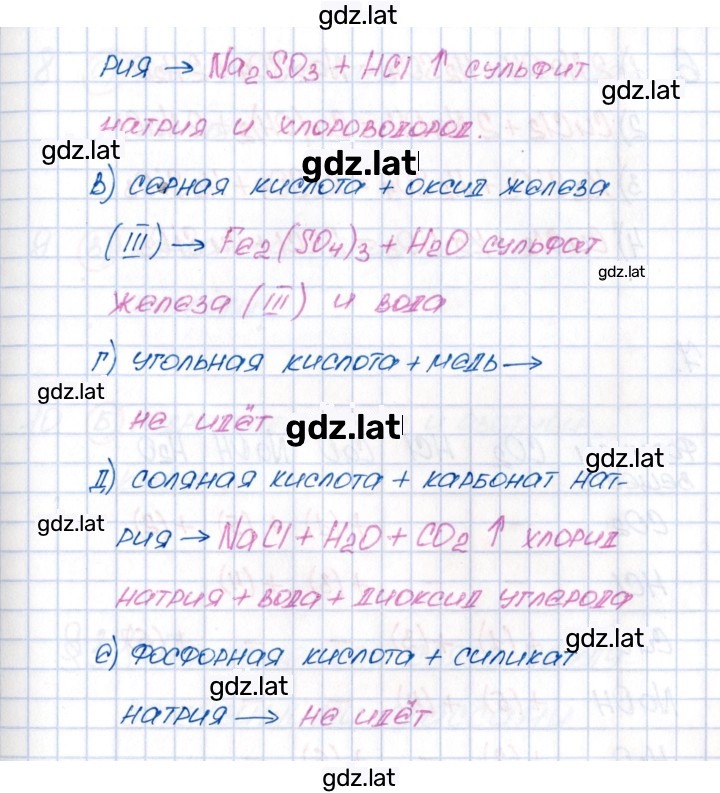 gdz.lat
рия → Na₂SO₃ + HCl ↑ сульфит
gdz.lat
натрия и хлороводород.
gdz.lat
gdz.lat
в) серная кислота + оксид железа
(III) → Fe₂(SO₄)₃ + H₂O сульфат
gdz.lat
железа (III) и вода
г) угольная кислота + медь →
gdz.lat
не идёт
gdz.lat
gdz.lat
д) соляная кислота + карбонат нат-
gdz.lat
рия → NaCl + H₂O + CO₂ ↑ хлорид
натрия + вода + диоксид углерода
gdz.lat
е) фосфорная кислота + силикат
gdz.lat
натрия → не идёт
gdz.lat